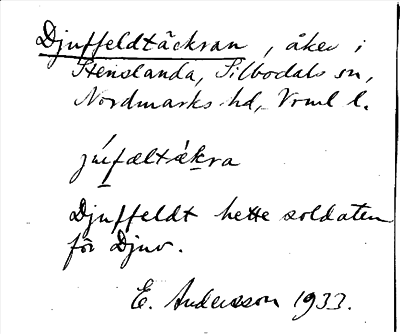 Djuffeldtäckran, åker i
Stenslanda, Silbodals sn,
Nordmarks hd, Vrml l.
júfæltækra
Djuffeldt hette soldaten
för Djuv.
E. Andersson 1933.